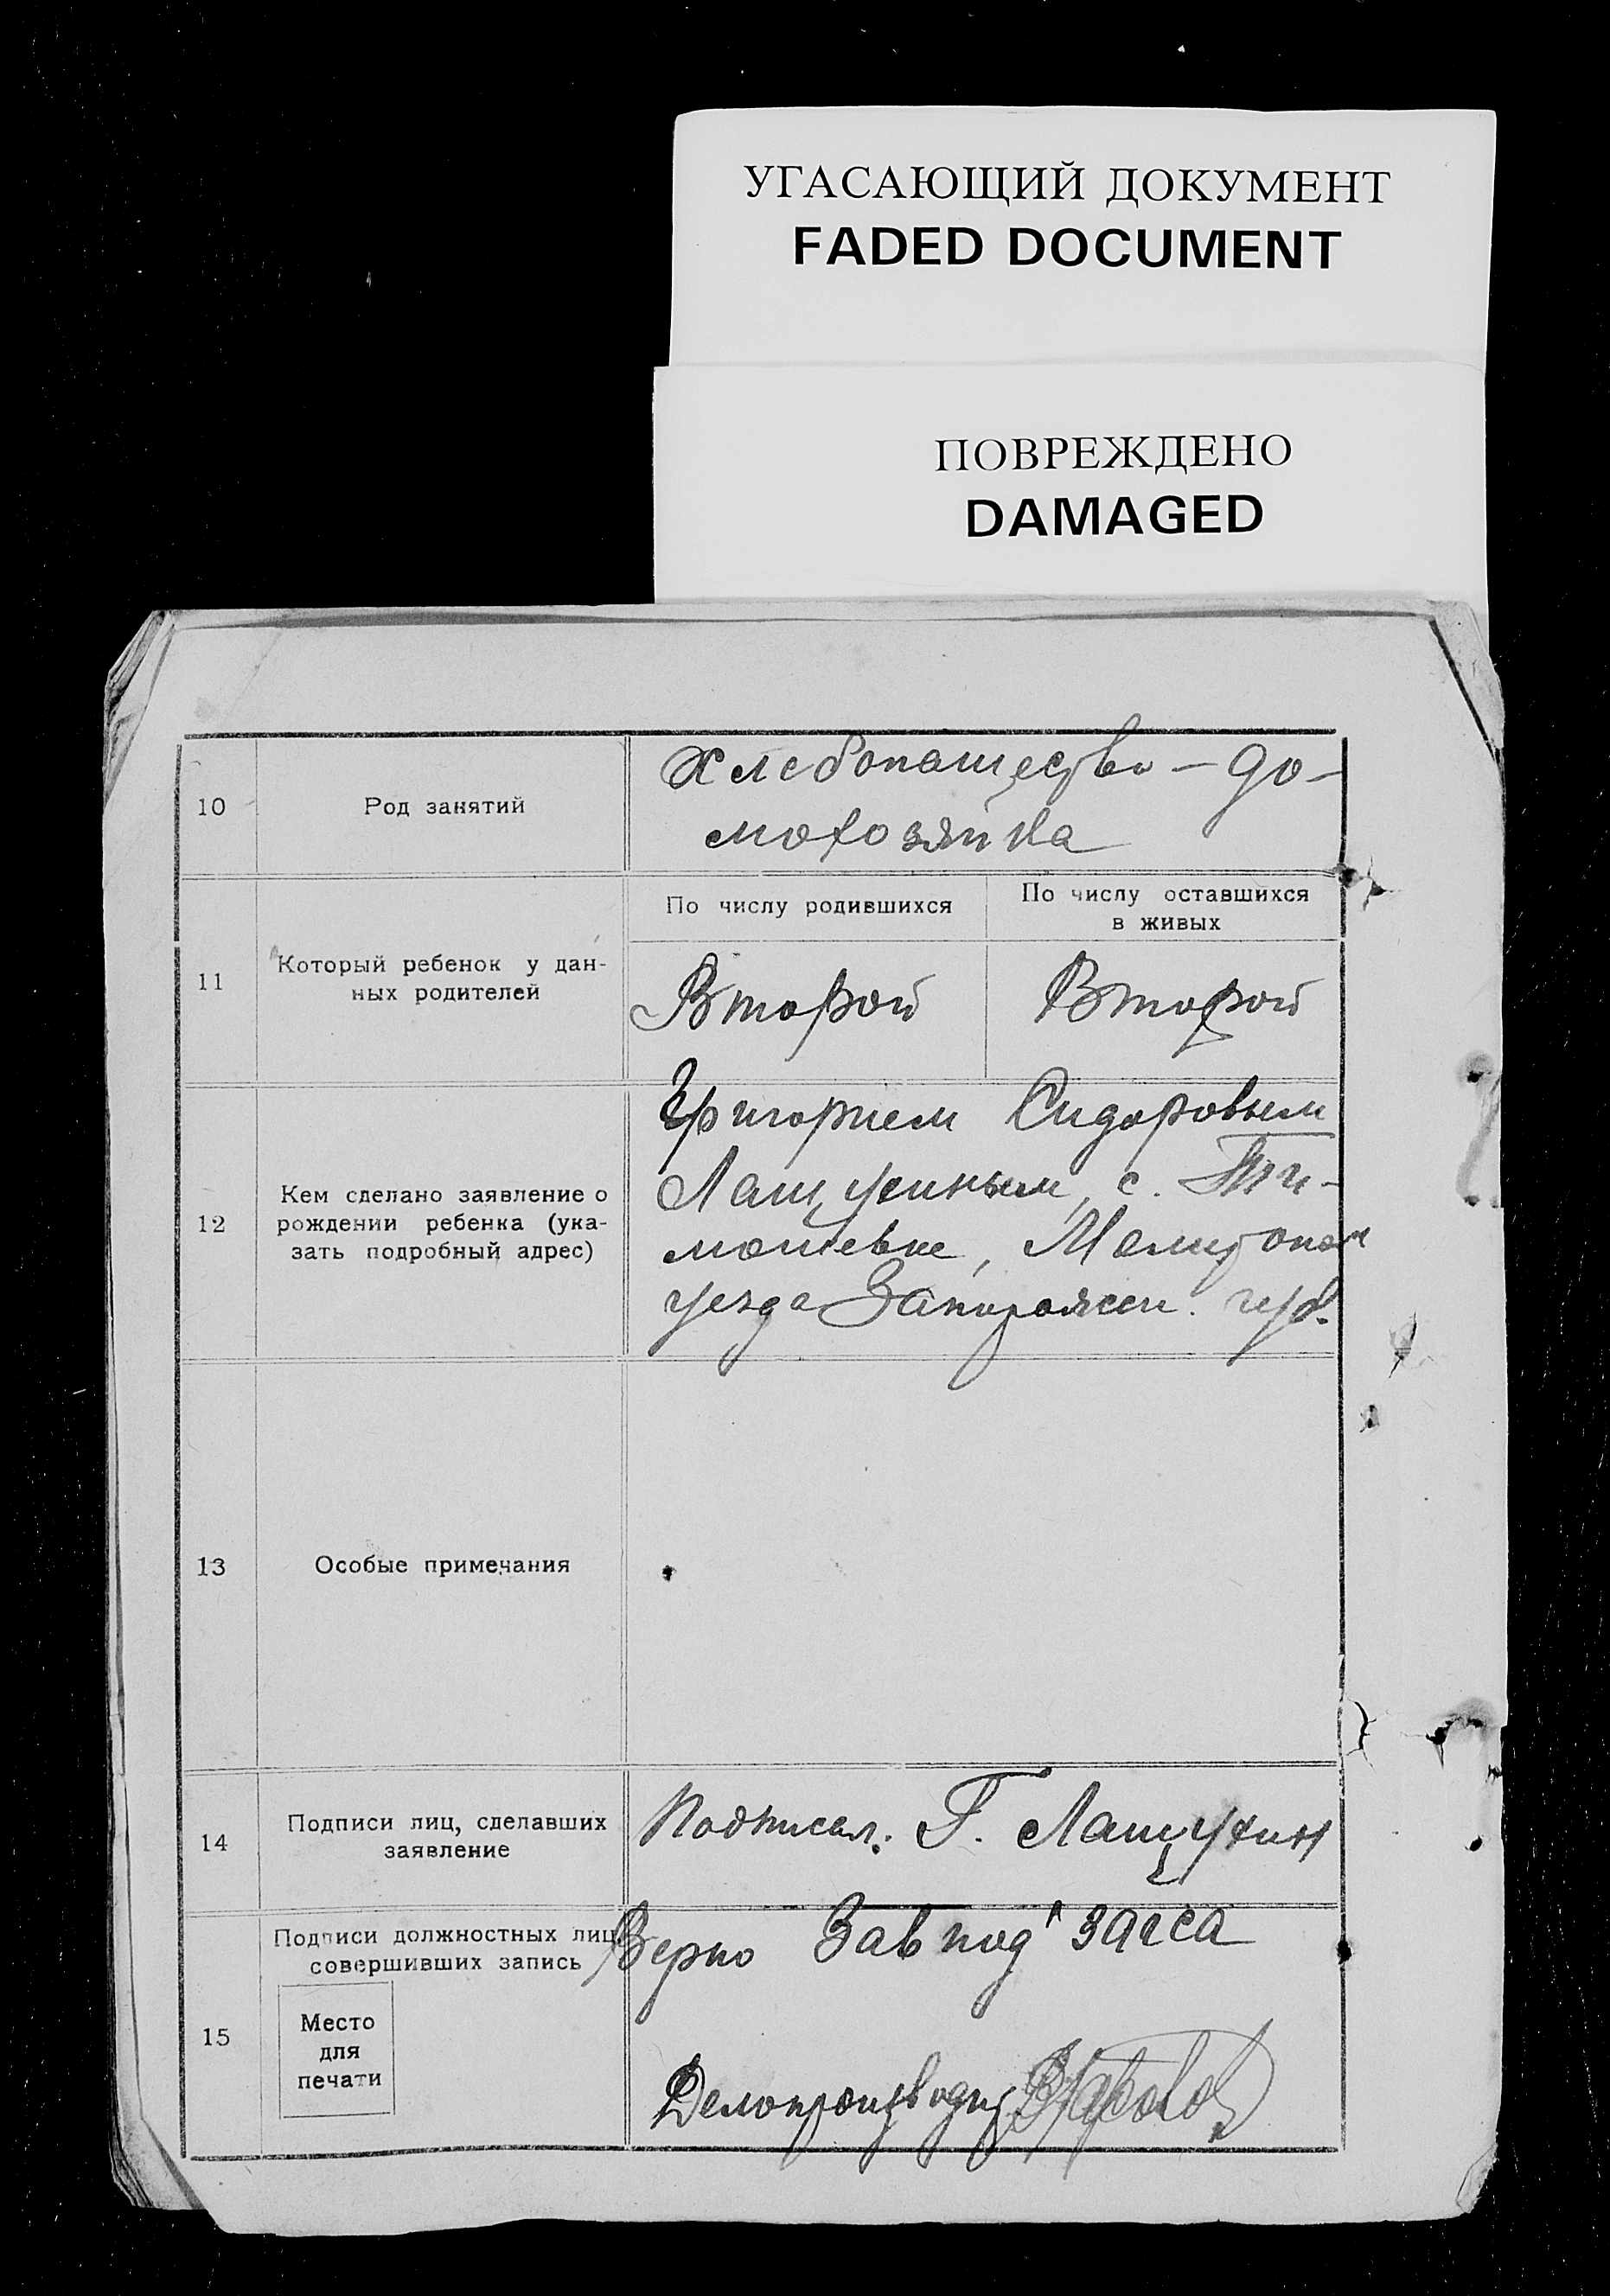 УГАСАЮЩИЙ ДОКУМЕНТ
FADED DOCUMENT
ПОВРЕЖДЕНО
DAMAGED
10
Род занятий
Хлебопашество – до-
мохозяйка
11
Который ребенок у дан-
ных родителей
По числу родившихся
По числу оставшихся
в живых
Второй
Второй
12
Кем сделано заявление о
рождении ребенка (ука-
зать подробный адрес)
Григорием Сидоровым
с. Ти-
мошевке, Мелитопол
уезда Запорожск. губ.
13
Особые примечания
14
Подписи лиц, сделавших
заявление
Подписал: Г. Лащухин
15
Подписи должностных лиц,
совершивших запись
Место
для
печати
Верно Завпод Загса
Делопроизводит